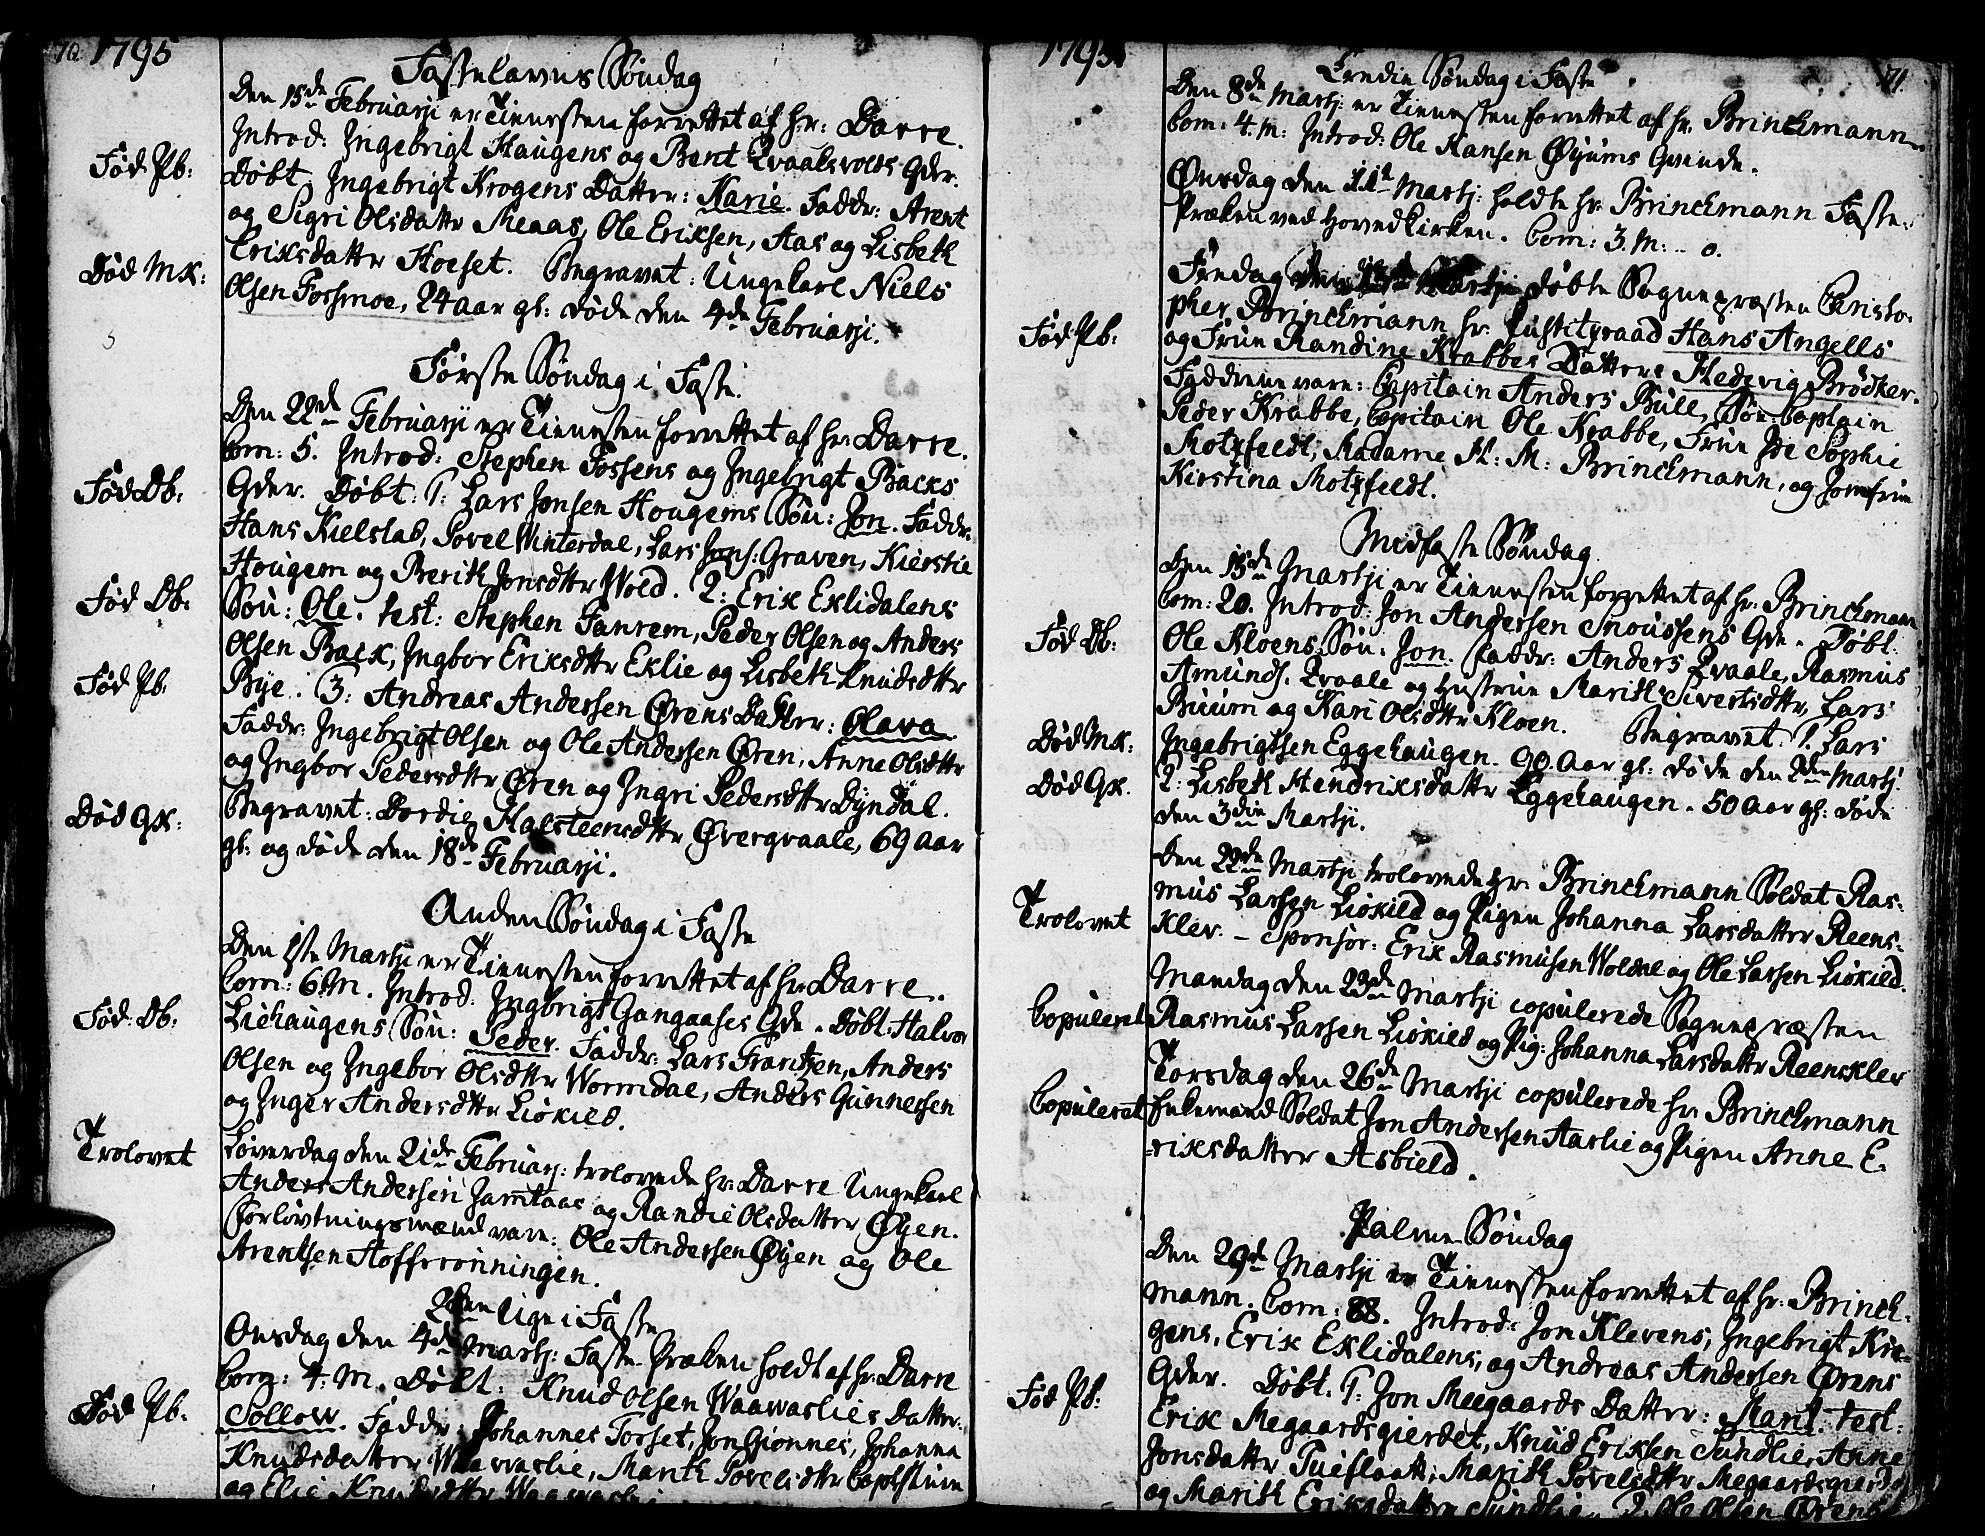 70 1795
Fastelavns Søndag
Den 15de Februarji er Tienesten forrettet af Hr: Darre.
Introd: Ingebrigt Haugens og Bent Qvaalsvolds Qder.
Fød Pb: Døbt Ingebrigt Krogens Datter: Karie. Faddr: Arent
og Sigri Olsdattr Meaas, Ole Eriksen, Aas og Lisbeth
Død MK: Eriksdattr Hoeset. Begravet: Ungekarl Niels
Olsen Fossmoe, 24 aar gl: døde den 4de Februarji.
Første Søndag i Faste.
Den 22de Februarji er Tienesten forrettet af Hr: Darre.
Com: 5. Introd: Stephen Fossens og Ingebrigt Backs
Fød Db: Qder. Døbt: 1: Lars Jonsen Hougems Søn: Jon. Faddr:
Hans Kielstad, Sovel Winterdal, Lars Jons: Graven, Kierstie
Hougem og Berith Jonsdttr Wold. 2: Erik Eklidalens
Fød Db: Søn: Ole. Test: Stephen Fanrem, Peder Olsen og Anders
Olsen Back, Ingbor Eriksdttr Eklie og Lisbeth Knudsdttr
Fød Pb. Bye. 3: Andreas Andersen Ørens Datter: Olava
Faddr: Ingebrigt Olsen og Ole Andersen Øren, Anne Olsdttr
og Ingbor Pedersdttr Øren og Ingri Pedersdttr Dyndal.
Død QK: Begravet: Dordie Halsteensdttr Øvergvaale, 69 aar
gl: og døde den 18de Februarji.
Anden Søndag i Faste
Den 1ste Martji er Tienesten forrettet af Hr: Darre.
Com: 6 M. Introd: Ingbrigt Gangaases Qde. Døbt: Halvor
Fød: Db: Liehaugens Søn: Peder. Faddr: Lars Frantzen, Anders
Olsen og Ingebor Olsdttr Wormdal, Anders Gunnersen
og Inger Andersdttr Liøkild.
Trolovet Løverdag den 21de Februarj: trolovede Hr: Darre Ungekarl
Anders Andersen Jamtaas og Randie Olsdatter Øyen.
Forlovtningsmænd vare: Ole Andersen Øyen og Ole
Arentsen Hoffsrønningen.
2den Uge i Faste
Onsdag den 4de Martj: Faste-Præken holdt af Hr: Darre
Com: 4. M. Døbt: Knud Olsen Waawaslies Datter:
Fød Pb. Sollow. Faddr: Johannes Forset, Jon Gionnes, Johanna
Knudsdatter Waawaslie, Marith Sovelsdttr
og Elie Knudsdttr Waawaslie
1795. 71.
Tredie Søndag i Faste
Den 8de Martj: er Tienesten forrettet af Hr. Brinchmann
Com: 4. M: Introd: Ole Hansen Øyums Qvinde.
Onsdag den 11te Martj: holdte Hr. Brinchmann Faste-
Præken ved Hovedkirken. Com: 3. M: - o.
Fredag den Martji døbte Sognepræsten Christo-
pher Brinchmann Hr. Justitzraad Hans Angells
Fød Pb: og Frue Randine Krabbes Datter: Hedevig Brødker.
Faddrene vare: Capitain Anders Bull, Capitain
Peder Krabbe, Capitain Ole Krabbe, Frue Ide Sophie
Motzfeldt, Madame M: M: Brinchmann, og Jomfrue
Kirstina Motzfeldt.
Midfaste Søndag
Den 15de Martji er Tienesten forrettet af Hr: Brinchmann
Com: 20. Introd: Jon Andersen Snoussens Qde. Døbt:
Fød Db: Ole Kloens Søn. Jon. Faddr: Anders Qvaale, Rasmus
Amunds. Qvaale og Hustrue Marith Sivertsdttr, Lars
Buum og Kari Olsdttr Kloen. Begravet: 1. Lars
Død MK: Ingebrigtsen Eggehaugen. 90 Aar gl: døde den 2den Martj.
Død QK. 2: Lisbeth Hendriksdattr Eggehaugen. 50 aar gl: døde
den 3die Martji.
Den 22de Martji trolovede Hr. Brinchmann Soldat Ras-
Trolovet mus Larsen Liøkild og Pigen Johanna Larsdatter Reens-
klev. - Sponsor: Erik Rasmusen Woldal og Ole Larsen Liøkild.
Mandag den 23de Martji copulerede Sognepræsten
Copuleret Rasmus Larsen Liøkild og Pig: Johanna Larsdattr Reensklev
Torsdag den 26de Martji copulerede Hr. Brinchmann
Copuleret Enkemand Soldat Jon Andersen Aarlie og Pigen Anne E-
riksdatter Asbield.
Palme Søndag
Den 29de Martji er Tienesten forrettet af Hr: Brinch-
mann. Com: 88. Introd: Jon Klevens, Ingebrigt Kro-
gens, Erik Eklidalens, og Andreas Andersen Ørens
Fød Pb: Qder. Døbt. 1: Jon Meegaards Datter: Marit. Test:
Erik Megaardsgierdet, Knud Eriksen Sundlie, Anne
Jonsdatter Tueflaatt, Marith Sovelsdttr Megaardsgierdet
og Marith Eriksdatter Sundlie. 2. Ole Olsen Ørens